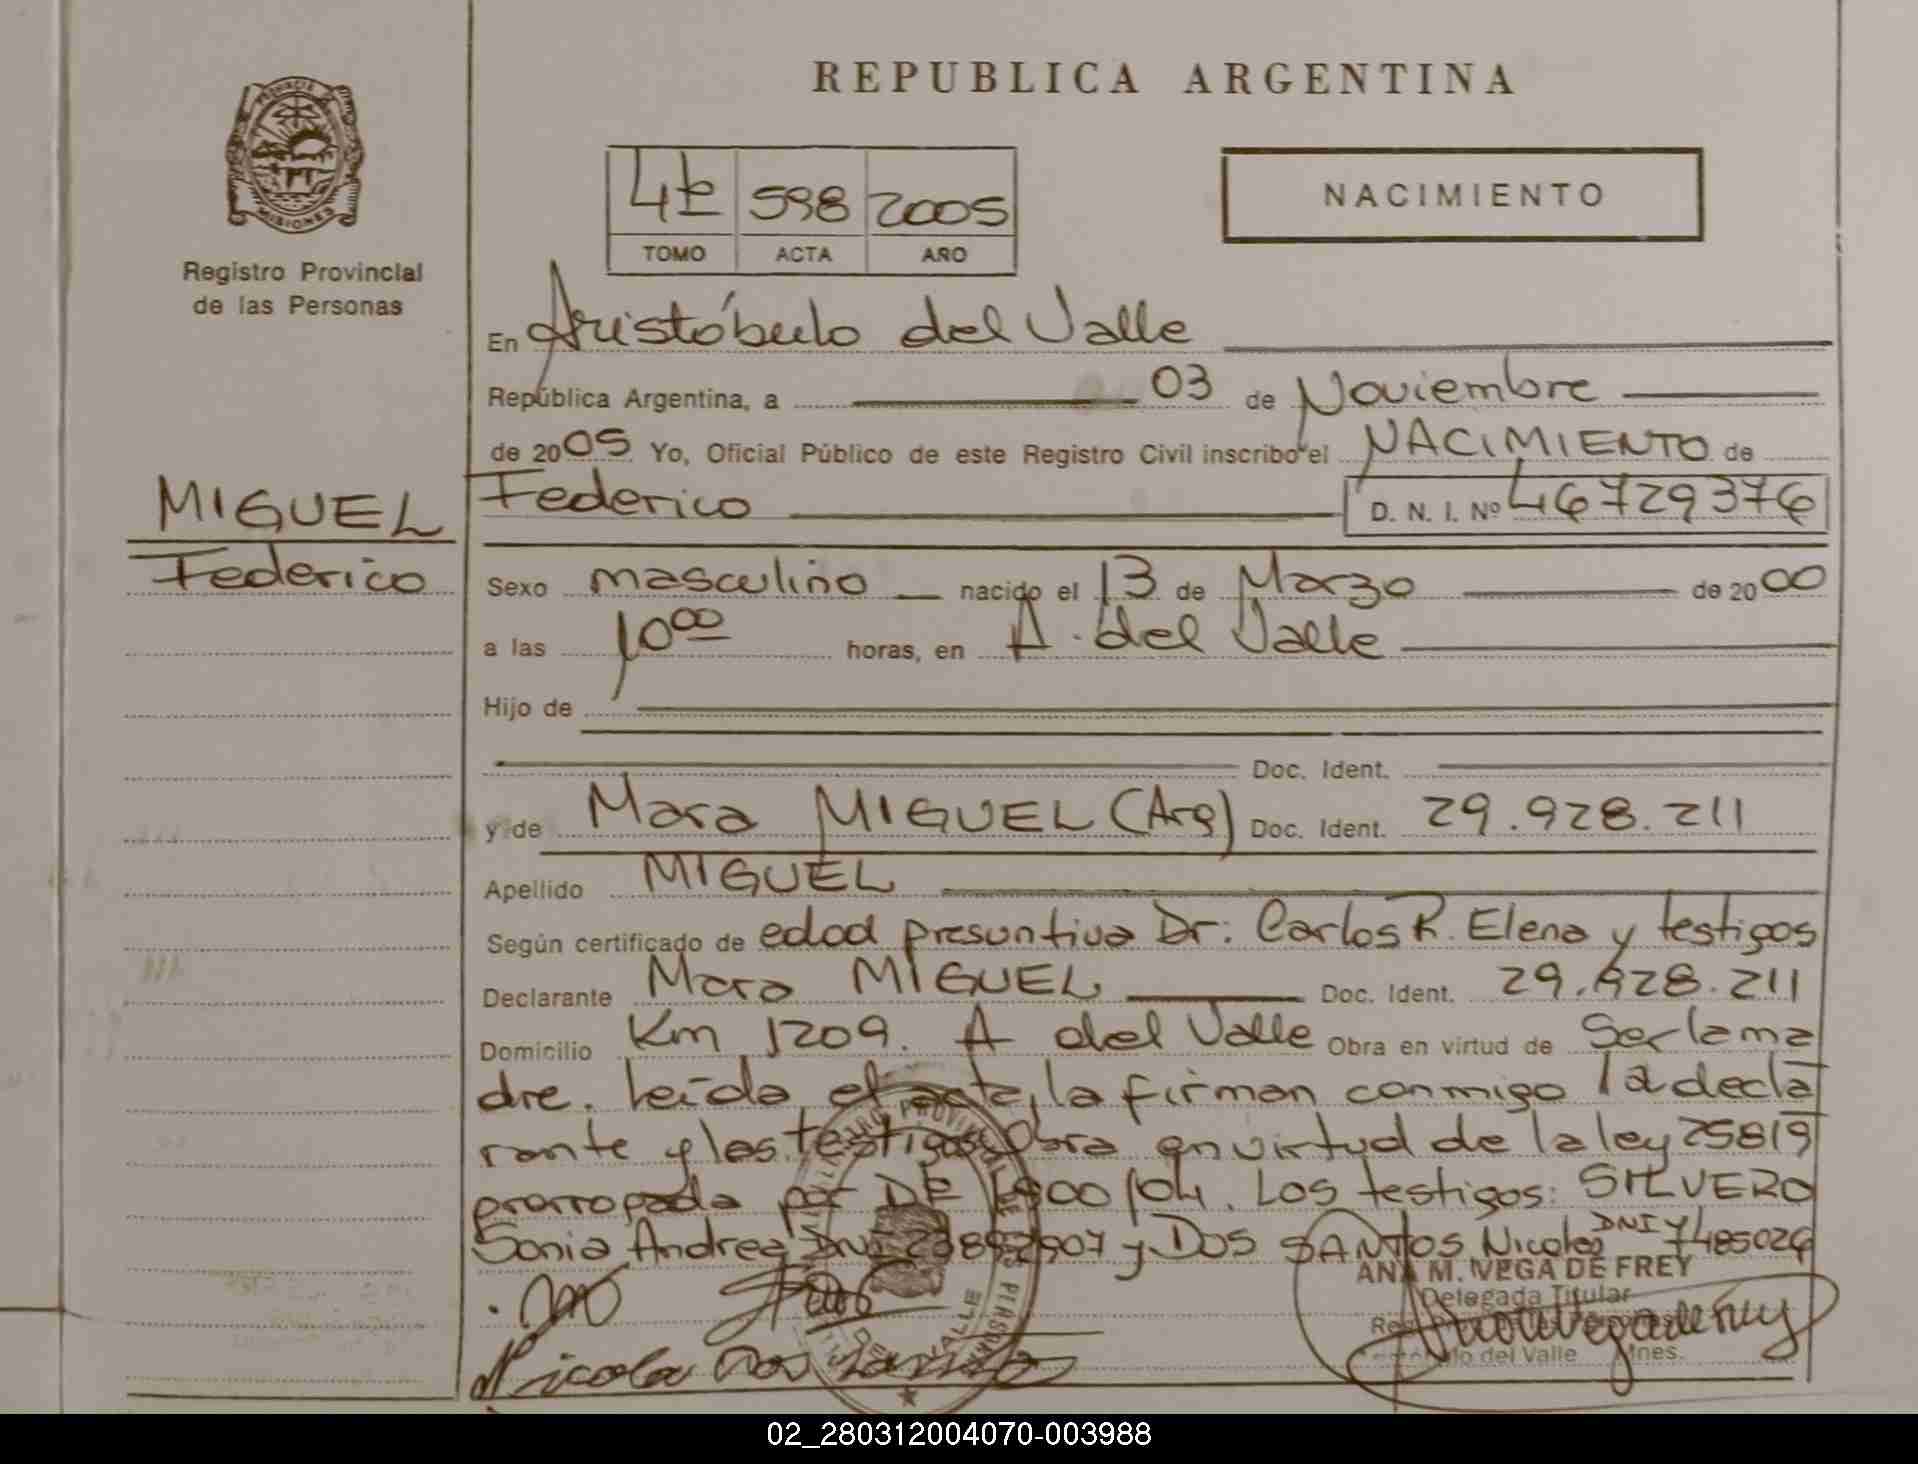 REPUBLICA ARGENTINA
PROVINCIA DE
MISIONES
Registro Provincial
de las Personas
4to 598 2005
TOMO ACTA AÑO
NACIMIENTO
En Aristóbulo del Valle
República Argentina, a 03 de Noviembre
de 2005 Yo, Oficial Público de este Registro Civil inscribo el NACIMIENTO de
MIGUEL
Federico
Federico D. N. I. Nº 46729376
Sexo masculino nacido el 13 de Marzo de 2000
a las 10 00 horas, en A. del Valle
Hijo de
Doc. Ident.
y de Mara MIGUEL (Arg) Doc. Ident. 29.928.211
Apellido MIGUEL
Según certificado de edad presuntiva Dr: Carlos R. Elena y testigos
Declarante Mara MIGUEL Doc. Ident. 29.928.211
Domicilio Km 1209. A del Valle Obra en virtud de Ser la ma
dre. Leída el acta, la firman conmigo la decla
rante y los testigos Obra en virtud de la ley 25819
prorrogada por 1900/04. Los testigos: SILVERO
Sonia Andrea DNI y DOS SANTOS Nicolas DNI 7485026
ANA M. VEGA DE FREY
Delegada Titular
del Valle Mnes.
02_280312004070-003988